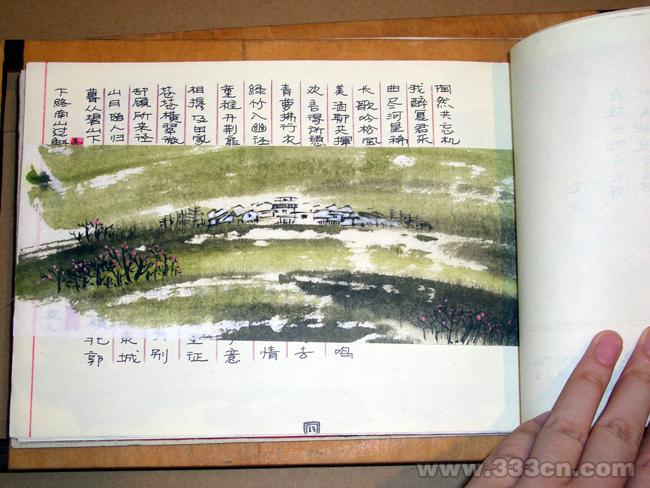 下南山过斛
暮从碧山下
山月随人归
却顾所来径
苍苍横翠微
相携及田家
童稚开荆扉
绿竹入幽径
青萝拂行衣
欢言得所憩
美酒聊共挥
长歌吟松风
曲尽河星稀
我醉君乐
陶然共忘机
北郭
城
别
征
意
情
去
鸣
13
www.333cn.com